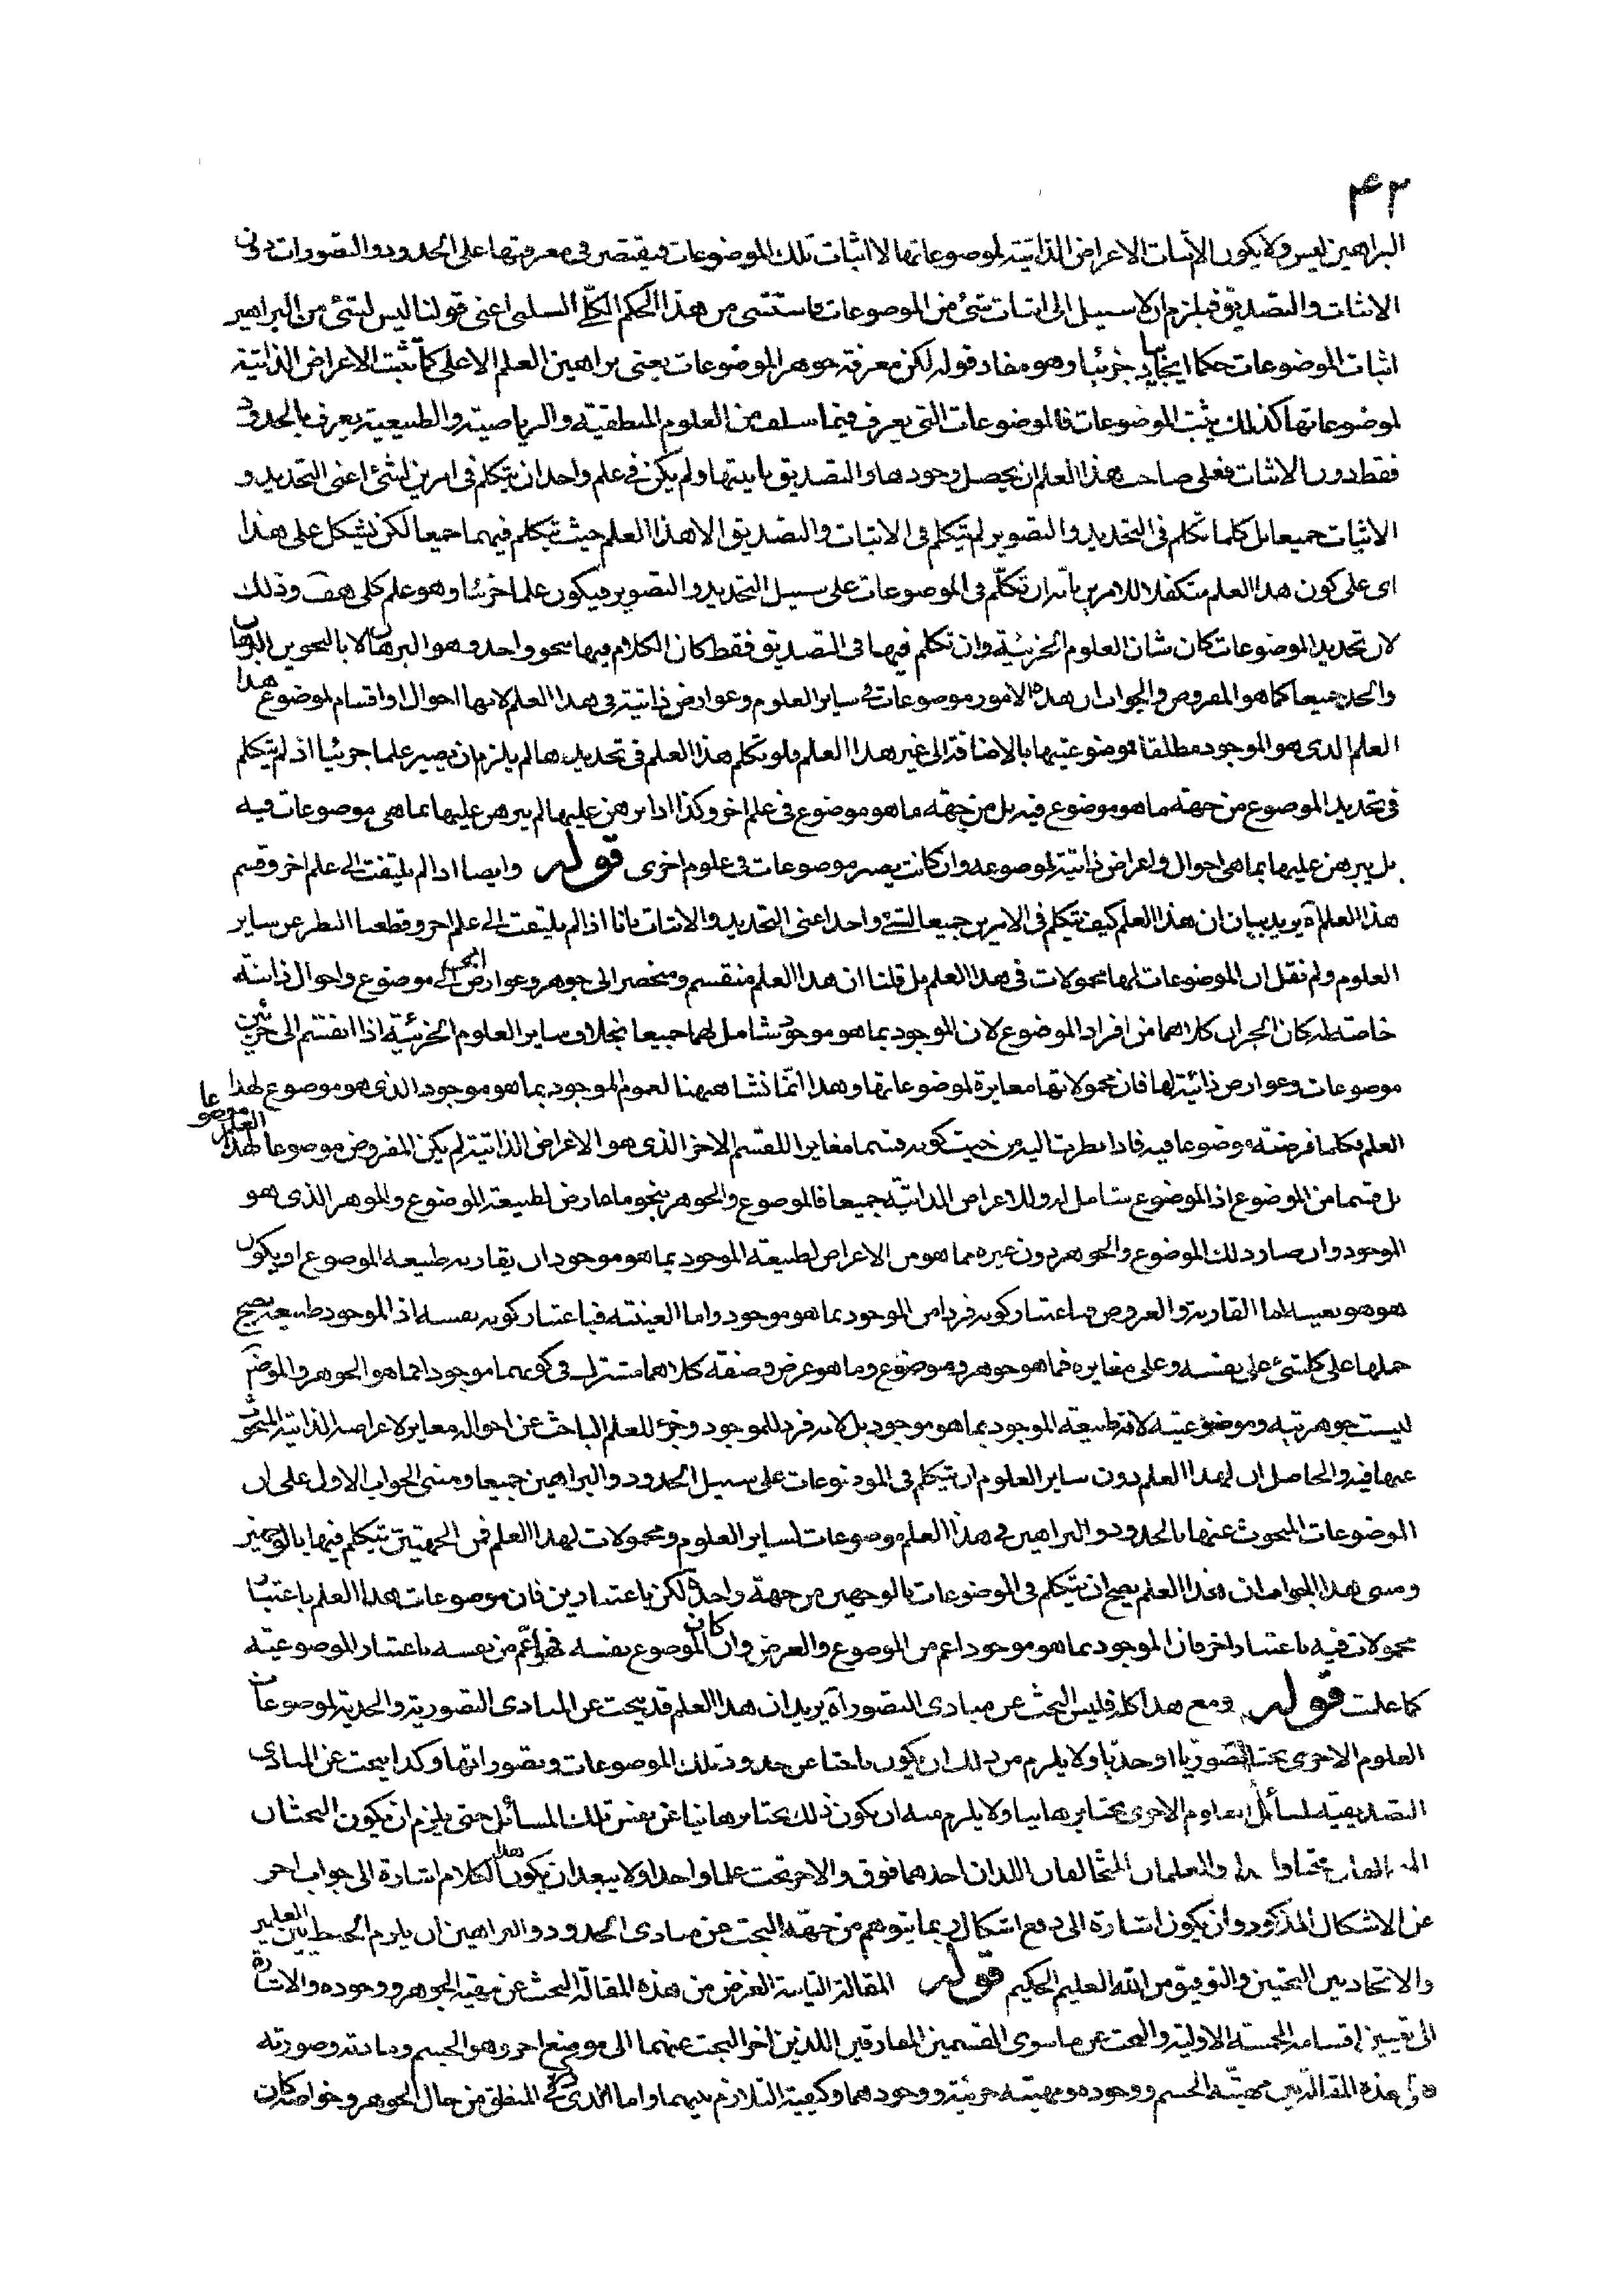 ۴۲
البراهين ليس ولا يكون الا اثبات الاعراض الذاتية لموضوعاتها لا اثبات تلك الموضوعات فيقتصر في معرفتها على الحدود والتصورات دون
الاثبات والتصديق فيلزم ان لا سبيل الى اثبات شئ من الموضوعات فاستثنى من هذا الحكم الكلى السلبى اعنى قولنا ليس لشئ من البراهين
اثبات الموضوعات حكما ايجابيا جزئيا وهو مفاد قوله لكن معرفة جوهر الموضوعات يعنى براهين العلم الاعلى كما تثبت الاعراض الذاتية
لموضوعاتها كذلك يثبت الموضوعات فالموضوعات التى يعرف فيما سلف من العلوم المنطقية والرياضية والطبيعية يعرف بالحدود
فقط دون الاثبات فعلى صاحب هذا العلم ان يحصل وجودها والتصديق بانيتها ولم يكن فى علم واحد ان يتكلم فى امرين لشئ اعنى التحديد و
الاثبات جميعا بل كلما تكلم فى التحديد والتصوير لم يتكلم فى الاثبات والتصديق الا هذا العلم حيث يتكلم فيهما جميعا لكن يشكل على هذا
اى على كون هذا العلم متكفلا للامرين بانه ان تكلم فى الموضوعات على سبيل التحديد والتصوير فيكون علما جزئيا وهو علم كلى هف وذلك
لان تحديد الموضوعات كان شان العلوم الجزئية وان تكلم فيها فى التصديق فقط كان الكلام فيها بنحو واحد وهو البرهان لا بالنحوين البرهان
والحد جميعا كما هو المفروض والجواب ان هذه الامور موضوعات فى ساير العلوم وعوارض ذاتية فى هذا العلم لانها احوال او اقسام لموضوع هذا
العلم الذى هو الموجود مطلقا فموضوعيتها بالاضافة الى غير هذا العلم فلو تكلم هذا العلم فى تحديدها لم يلزم ان يصير علما جزئيا اذ لم يتكلم
فى تحديد الموضوع من جهة ما هو موضوع فيه بل من جهة ما هو موضوع فى علم اخر وكذا اذا برهن عليها لم يبرهن عليها بما هى موضوعات فيه
بل يبرهن عليها بما هى احوال واعراض ذاتية لموضوعه وان كانت يصير موضوعات فى علوم اخرى قوله وايضا اذا لم يلتفت الى علم اخر وقسم
هذا العلم آه يريد بيان ان هذا العلم كيف يتكلم فى الامرين جميعا لشئ واحد اعنى التحديد والاثبات بانا اذا لم يلتفت الى علم اخر وقطعنا النظر عن ساير
العلوم ولم نقل ان الموضوعات لها محمولات فى هذا العلم بل قلنا ان هذا العلم منقسم ومنحصر الى جوهر وعوارض الى موضوع واحوال ذاتية
خاصة له كان الجزان كلاهما من افراد الموضوع لان الموجود بما هو موجود شامل لهما جميعا بخلاف ساير العلوم الجزئية اذا انقسم الى جزئين
موضوعات وعوارض ذاتية لها فان محمولاتها مغايرة لموضوعاتها وهذا انما نشا هيهنا لعموم الموجود بما هو موجود الذى هو موضوع لهذا
العلم فكلما فرضته موضوعا فيه فاذا نظرت اليه من حيث كونه قسما مغايرا للقسم الاخر الذى هو الاعراض الذاتية لم يكن المفروض موضوعا لهذا العلم موضوعا
بل قسما من الموضوع اذ الموضوع شامل له وللاعراض الذاتية جميعا فالموضوع والجوهر بنحو ما عارض لطبيعة الموضوع والجوهر الذى هو
الموجود وان صار ذلك الموضوع والجوهر دون غيره مما هو من الاعراض لطبيعة الموجود بما هو موجود ان يقارنه طبيعة الموضوع او يكون
هو هو بعينه اما المقارنة والعروض فباعتبار كونه فردا من الموجود بما هو موجود واما العينية فباعتبار كونه نفسه اذ الموجود طبيعة يصح
حملها على كل شئ على نفسه وعلى مغايره فما هو جوهر وموضوع وما هو عرض وصفة كلاهما مشترك فى كونهما موجودا فما هو الجوهر والموضوع
ليست جوهريته وموضوعيته لانه طبيعة الموجود بما هو موجود بل لانه فرد للموجود وجزء للعلم الباحث عن احواله مغاير لاعراضه الذاتية المبحوث
عنها فيه والحاصل ان لهذا العلم دون ساير العلوم ان يتكلم فى الموضوعات على سبيل الحدود والبراهين جميعا ومبنى الجواب الاول على ان
الموضوعات المبحوث عنها بالحدود والبراهين فى هذا العلم موضوعات لساير العلوم ومحمولات لهذا العلم فمن الجهتين يتكلم فيها بالوجهين
ومبنى هذا الجواب ان هذا العلم يصح ان يتكلم فى الموضوعات بالوجهين من جهة واحدة لكن باعتبارين فان موضوعات هذا العلم باعتبار
محمولات فيه باعتبار اخر فان الموجود بما هو موجود اعم من الموضوع والعرض وان كان الموضوع نفسه فهو اعم من نفسه باعتبار الموضوعية
كما علمت قوله ومع هذا كله فليس البحث عن مبادى التصور آه يريد ان هذا العلم قد يبحث عن المبادى التصورية والحدية لموضوعات
العلوم الاخرى بحثا تصوريا او حديا ولا يلزم من ذلك ان يكون باحثا عن حدود تلك الموضوعات وتصوراتها وكذا يبحث عن المبادى
التصديقية لمسائل العلوم الاخرى بحثا برهانيا ولا يلزم منه ان يكون ذلك بحثا برهانيا عن نفس تلك المسائل حتى يلزم ان يكون البحثان
المتخالفان بحثا واحدا والعلمان المتخالفان اللذان احدهما فوق والاخر تحت علما واحدا ولا يبعد ان يكون هذا الكلام اشارة الى جواب اخر
عن الاشكال المذكور وان يكون اشارة الى دفع اشكال ربما يتوهم من جهة البحث عن مبادى الحدود والبراهين ان يلزم الخلط بين العلمين
والاتحاد بين البحثين والتوفيق من الله العليم الحكيم قوله المقالة الثانية الغرض من هذه المقالة البحث عن مهية الجوهر ووجوده والاشارة
الى تقسيم اقسامه الخمسة الاولية والبحث عن ما سوى القسمين المفارقين اللذين اخر البحث عنهما الى موضع اخر وهو الجسم ومادته وصورته
هذه المقالة بين مهية الجسم ووجوده ومهية جزئيه ووجودهما وكيفية التلازم بينهما واما الذى فى المنطق من حال الجوهر وخواصه كان